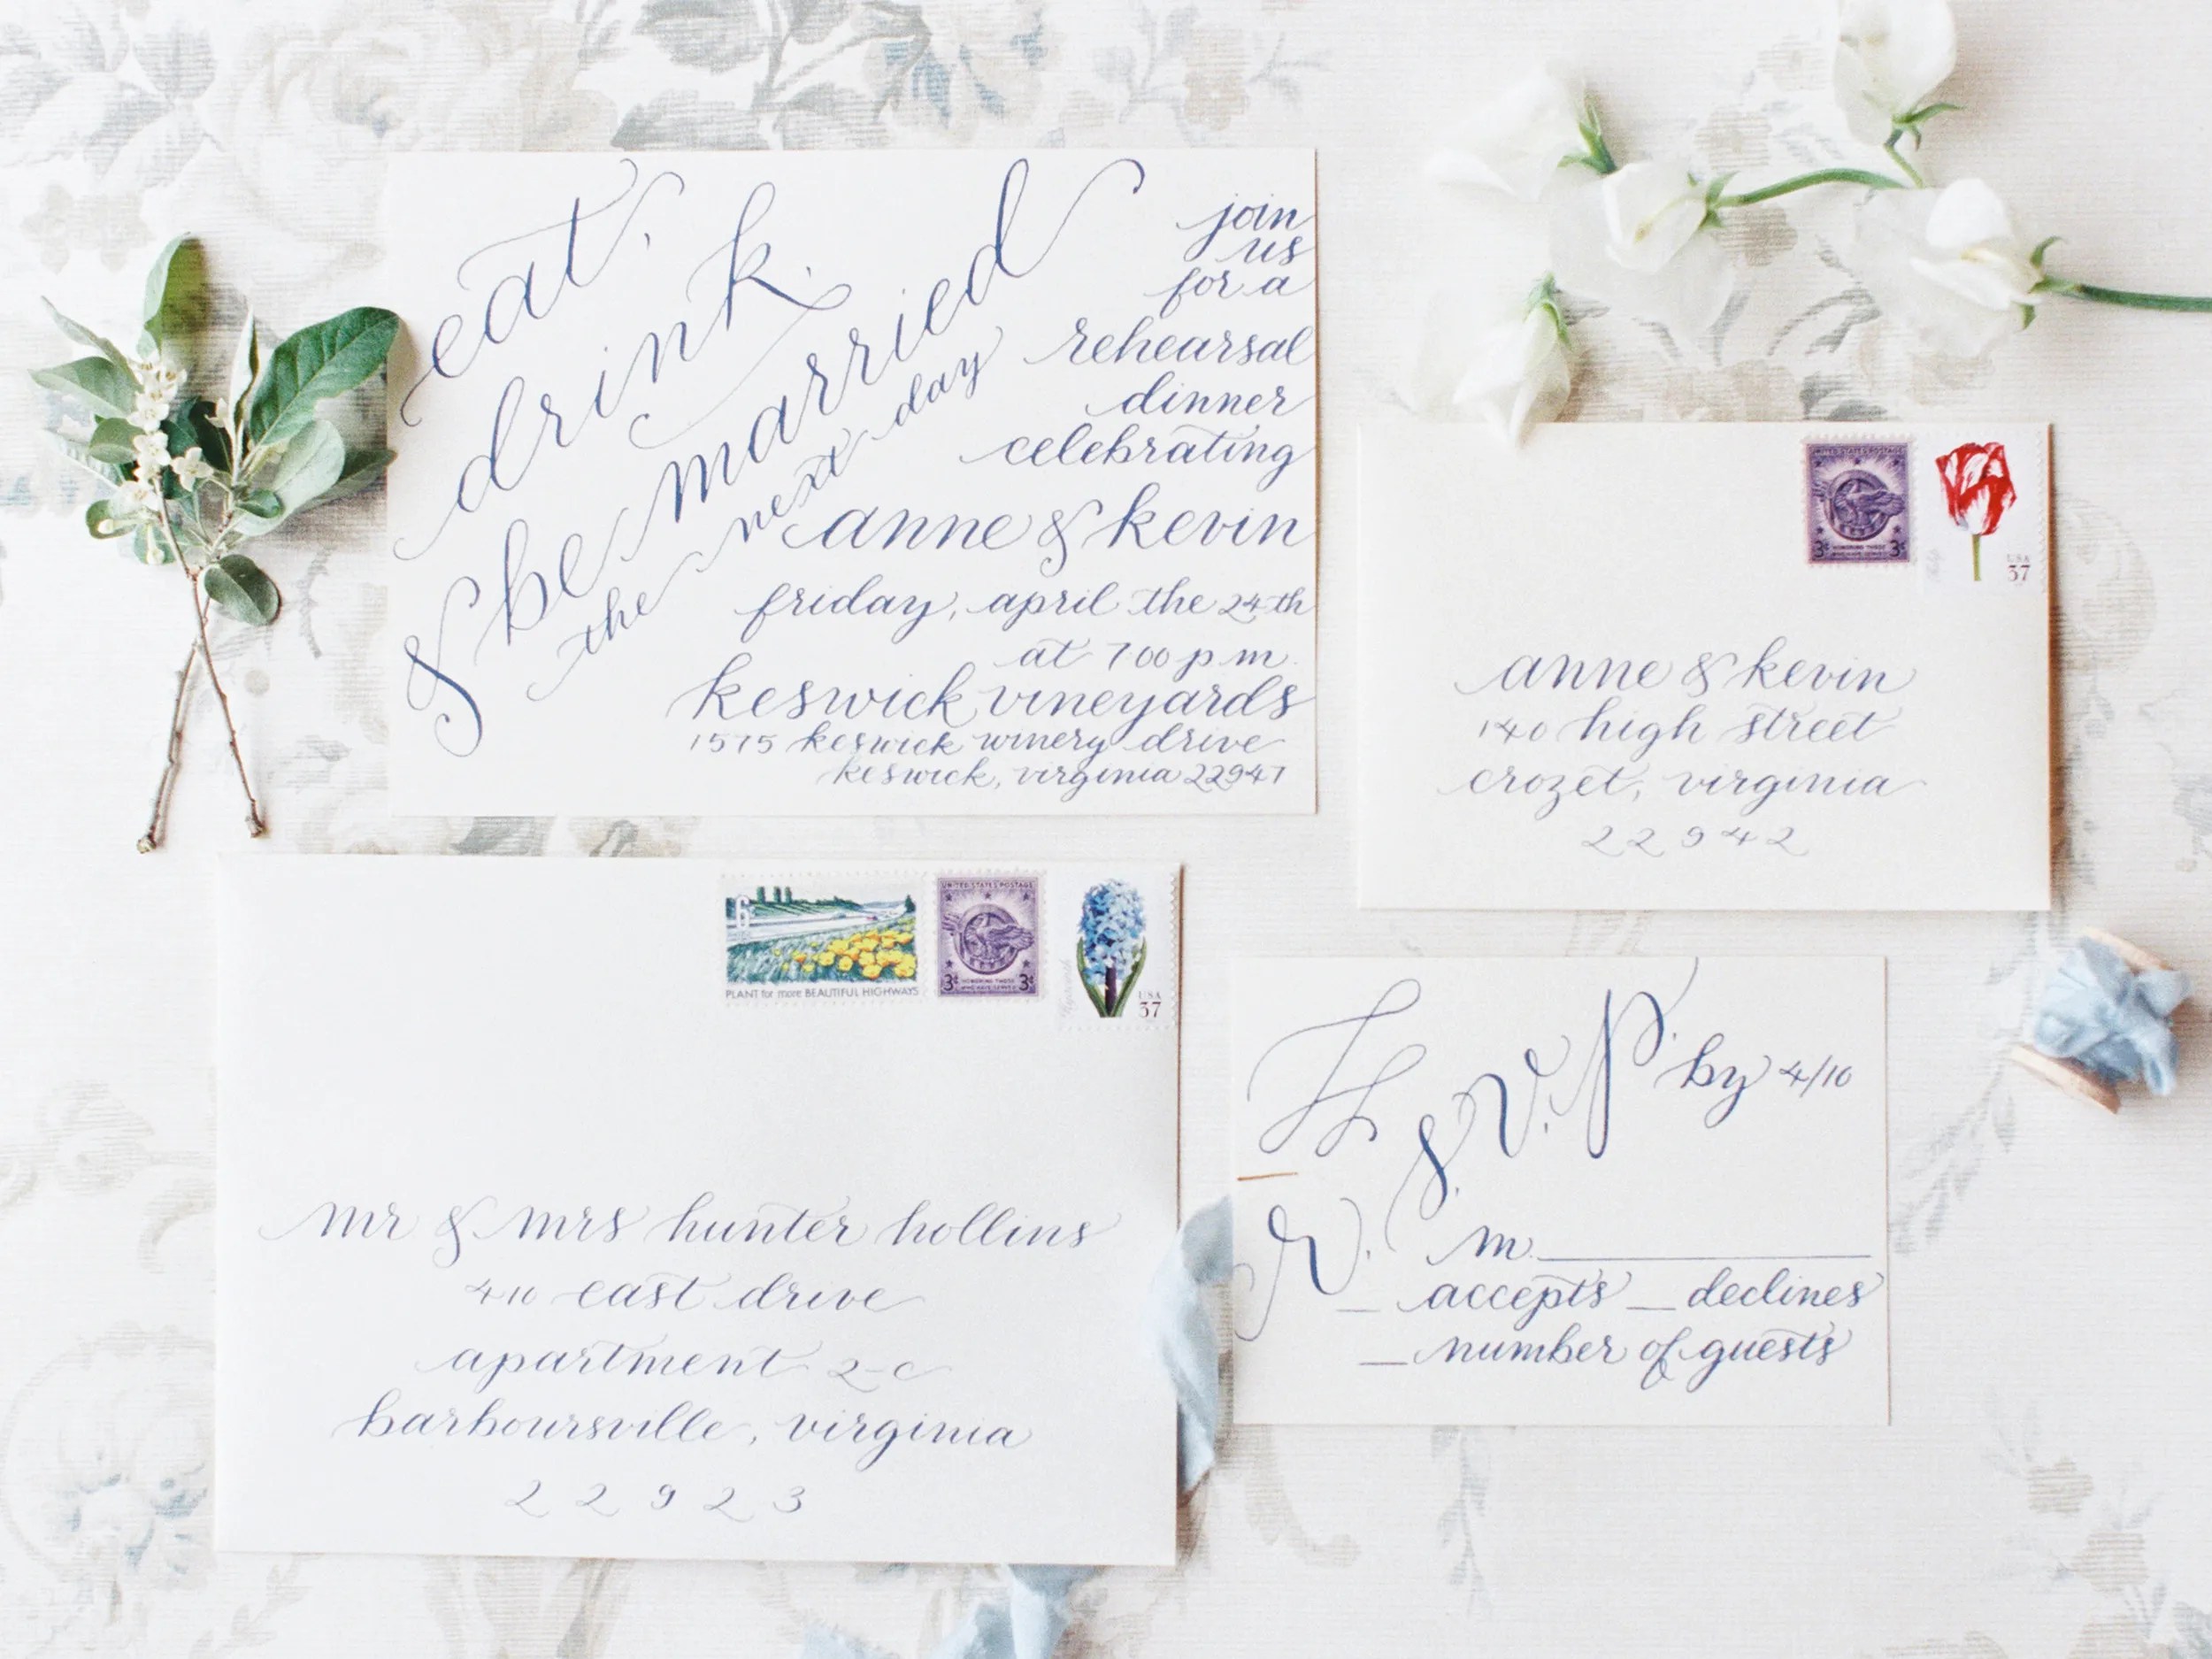 eat,
drink,
& be married
the next day
join
us
for a
rehearsal
dinner
celebrating
anne & kevin
friday, april the 24th
at 7 00 p m.
keswick vineyards
1575 keswick winery drive
keswick, virginia 22947
UNITED STATES POSTAGE
3¢ HONORING THOSE 3¢
WHO HAVE SERVED
USA
37
anne & kevin
140 high street
crozet, virginia
22942
6
PLANT for more BEAUTIFUL HIGHWAYS
UNITED STATES POSTAGE
3¢ HONORING THOSE 3¢
WHO HAVE SERVED
Hyacinth
USA
37
mr & mrs hunter hollins
410 east drive
apartment 2-c
barboursville, virginia
22923
R. S. V. P. by 4/10
m
accepts declines
number of guests